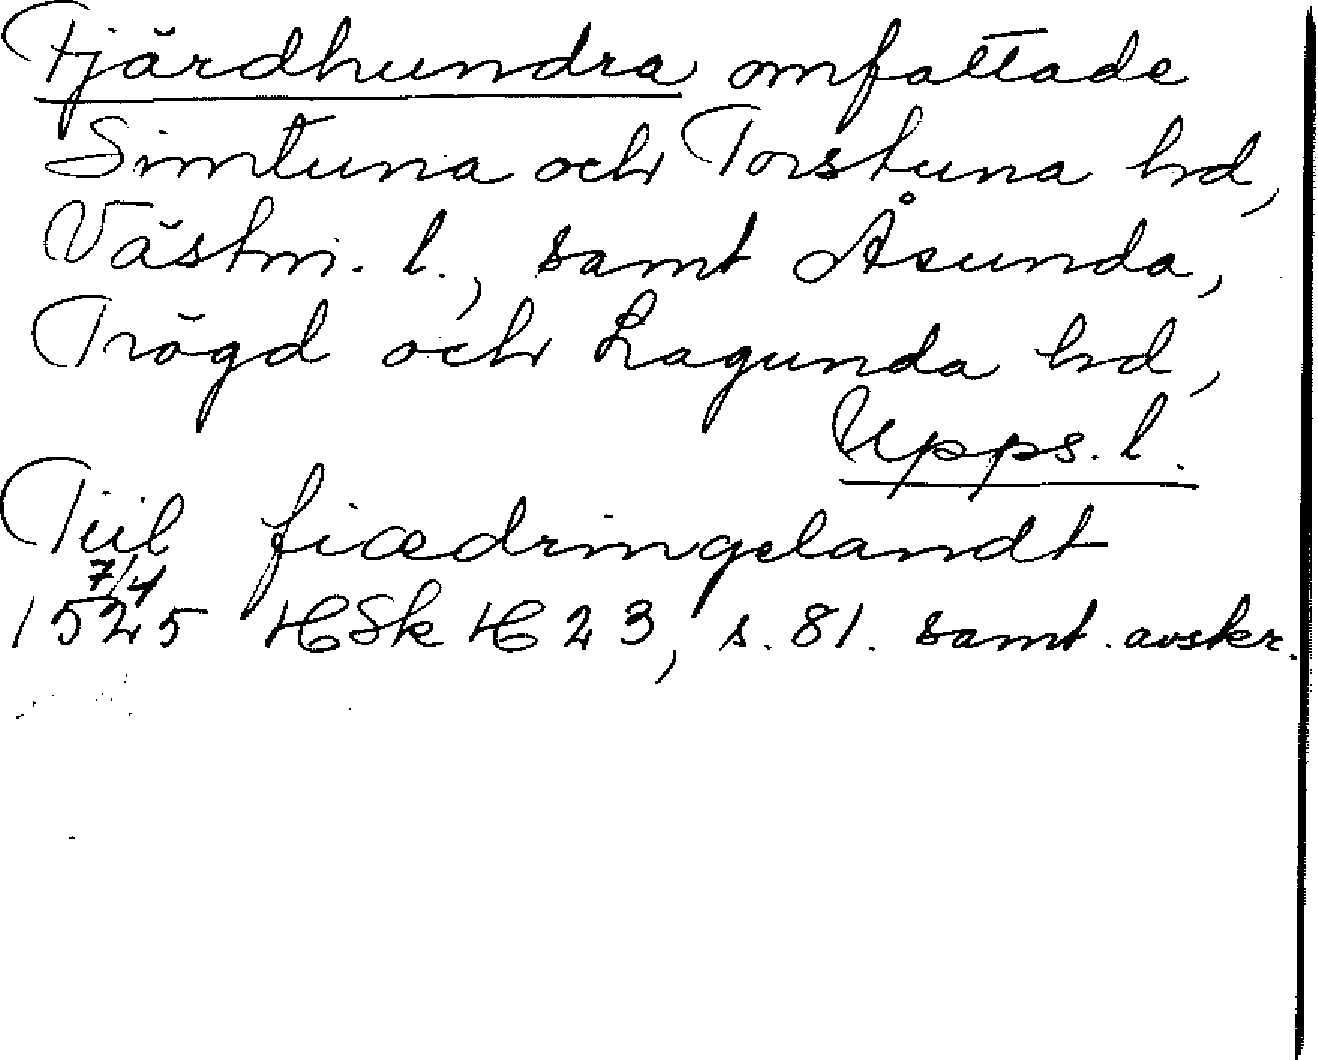 Fjärdhundra omfattade
Simtuna och Torstuna hd,
Västm. l., samt Åsunda,
Trögd och Lagunda hd,
Upps. l.
Tiil fiædringelandt
7/4
1525 HSk H 23, s. 81. samt. avskr.